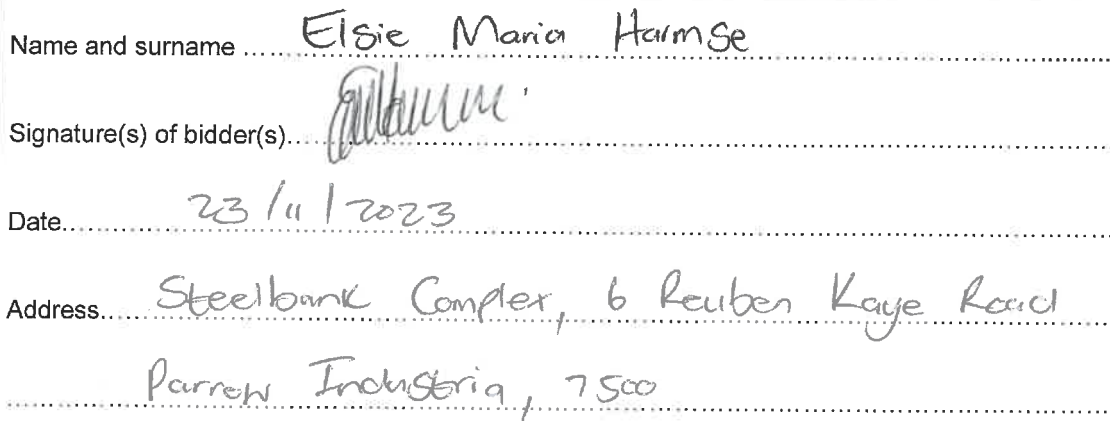 Name and surname ..... Elsie Maria Harmse
Signature(s) of bidder(s)...
Date... 23/11/2023
Address... Steelbank Complex, 6 Reuben Kaye Road
Parrow Industria, 7500